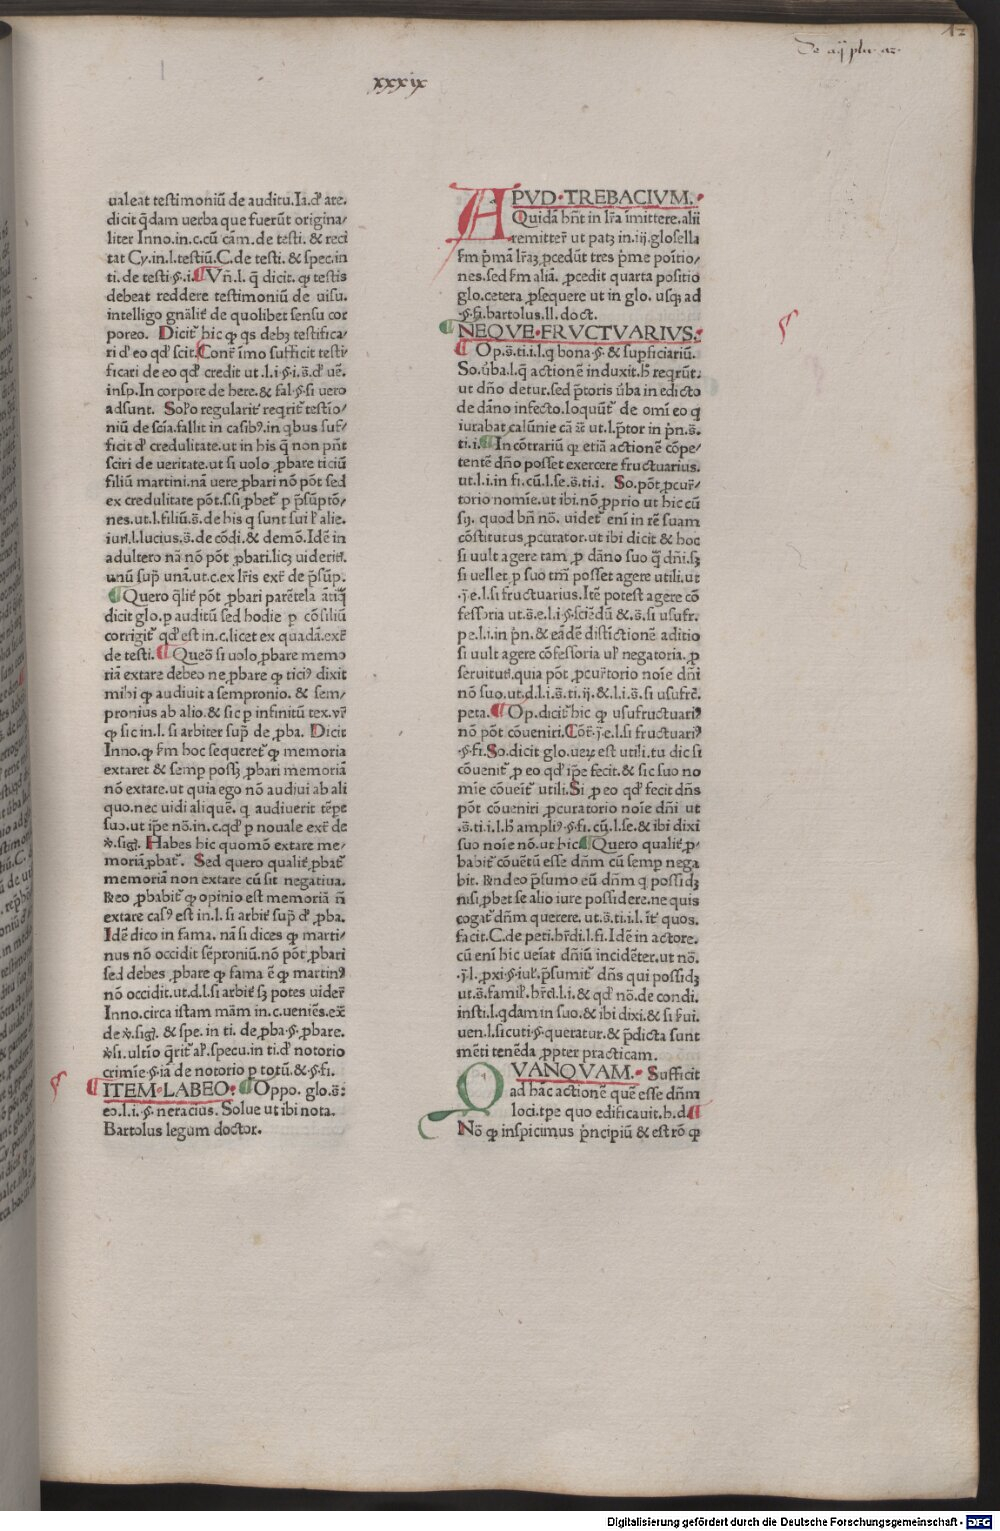 12
De aq̄ plu. ar.
xxxix
ualeat testimoniū de auditu. Ia. d̕ are.
dicit q̄dam uerba que fuerūt origina/
liter Inno. in. c. cū cām. de testi. & reci
tat Cy. in. l. testiū. C. de testi. & spec. in
ti. de testi. §. i. ¶ Vn̄. l. q̄ dicit. ꝙ testis
debeat reddere testimoniū de uisu.
intelligo gnālit̄ de quolibet sensu cor
poreo. Dicit̄ hic ꝙ qs debꝫ testifica/
ri d̕ eo qd̕ scit. Contr̄ imo sufficit testi/
ficari de eo qd̕ credit ut. l. i. §. i. s̄. d̕ uē.
insp. In corpore de here. & fal. §. si uero
adsunt. Solo regularit̄ reqrit̄ testio/
niū de sciā. fallit in casibꝰ. in qbus suf/
ficit d̕ credulitate. ut in his q̄ non pn̄t
sciri de ueritate. ut si uolo ꝓbare ticiū
filiū martini. nā uere ꝓbari nō pōt sed
ex credulitate pōt. s. si ꝓbet̄ p p̄sūptō/
nes. ut. l. filiū. s̄. de his q sunt sui l̕ alie.
iur. l. lucius. s̄. de cōdi. & demō. Idē in
adultero nā nō pōt ꝓbari. licꝫ uiderit.
unū sup̄ unā. ut. c. ex lr̄is extr̄ de p̄sūp.
¶ Quero q̄lit̄ pōt ꝓbari parētela āтiq̄
dicit glo. p auditū sed hodie p cōsiliū
corrigit̄ qd̕ est in. c. licet ex quadā. extr̄
de testi. ¶ Queō si uolo ꝓbare memo
riā extare debeo ne ꝓbare ꝙ ticiꝰ dixit
mihi ꝙ audiuit a sempronio. & sem/
pronius ab alio. & sic p infinitū tex. vr̄
ꝙ sic in. l. si arbiter sup̄ de ꝓba. Dicit
Inno. ꝙ s̄m hoc sequeret̄ ꝙ memoria
extaret & semp possꝫ ꝓbari memoriā
nō extare. ut quia ego nō audiui ab ali
quo. nec uidi aliquē. q audiuerit tēpe
suo. ut ip̄e nō. in. c. qd̕ p nouale extr̄ de
v̄. sigi. Habes hic quomō extare me/
moriā ꝓbat̄. Sed quero qualit̄ ꝓbat̄
memoriā non extare cū sit negatiua.
Rn̄eo ꝓbabit̄ ꝙ opinio est memoriā n̄
extare casꝰ est in. l. si arbit̄ sup̄ d̕ ꝓba.
Idē dico in fama. nā si dices ꝙ marti/
nus nō occidit sēproniū. nō pōt ꝓbari
sed debes ꝓbare ꝙ fama ē ꝙ martinꝰ
nō occidit. ut. d. l. si arbit̄ sꝫ potes uider̄
Inno. circa istam mām in. c. ueniēs. ex̄
de v̄. sigi. & spe. in ti. de ꝓba. §. ꝓbare.
v̄si. ultio q̄rit̄ al̕. specu. in ti. d̕ notorio
crimīe. §. iā de notorio p totū. & §. fi.
¶ ITEM. LABEO. ¶ Oppo. glo. s̄.
eo. l. i. §. neracius. Solue ut ibi nota.
Bartolus legum doctor.
APVD. TREBACIVM.
Quidā hn̄t in lr̄a īmittere. alii
remitter̄ ut patꝫ in. iij. glosella
s̄m p̄mā lr̄aꝫ ꝓcedūt tres p̄me poitio/
nes. sed s̄m aliā. ꝓcedit quarta positio
glo. cetera ꝓsequere ut in glo. usqꝫ ad
§. fi. bartolus. ll. doct.
¶ NEQVE. FRVCTVARIVS.
¶ Op. s̄. ti. i. l. q bona. §. & supficiariū.
So. ūba. l. q̄ actionē induxit. h̄ reqrūt.
ut dn̄o detur. sed p̄toris ūba in edicto
de dāno infecto. loquūt̄ de omī eo q
iurabat calūnie cā ut. l. p̄tor in p̄n. s̄.
ti. i. ¶ In cōtrariū ꝙ etiā actionē cōpe/
tentē dn̄o posset exercere fructuarius.
ut. l. i. in fi. cū. l. se. s̄. ti. i. So. pōt ꝓcur̄/
torio nomīe. ut ibi. nō ꝓprio ut hic cū
sꝫ. quod bn̄ nō. uidet̄ enī in rē suam
cōstitutus ꝓcurator. ut ibi dicit & hoc
si uult agere tam p dāno suo q̄ dn̄i. sꝫ
si uellet p suo tm̄ posset agere utili. ut
.j. e. l. si fructuarius. Itē potest agere cō
fessoria ut. s̄. e. l. i. §. sciēdū & .s̄. si usufr.
pe. l. i. in p̄n. & eādē distīctionē aditio
si uult agere cōfessoria ul̕ negatoria. p
seruitut̄. quia pōt ꝓcur̄torio noīe dn̄i
nō suo. ut. d. l. i. s̄. ti. ij. & .l. i. s̄. si usufr̄.
peta. ¶ Op. dicit̄ hic ꝙ usufructuariꝰ
nō pōt cōueniri. Cōt̄. j. e. l. si fructuariꝰ
.§. fi. So. dicit glo. ueꝝ est utili. tu dic si
cōuenit̄ p eo qd̕ ip̄e fecit. & sic suo no
mīe cōueit̄ utili. Si p eo qd̕ fecit dn̄s
pōt cōueniri ꝓcuratorio noīe dn̄i ut
.s̄. ti. i. l. h̄ ampliꝰ. §. fi. cū. l. se. & ibi dixi
suo noīe nō. ut hic ¶ Quero qualit̄ ꝓ/
babit̄ cōuētū esse dn̄m cū semp nega
bit. Rn̄deo p̄sumo eū dn̄m q possidꝫ
nisi ꝓbet se alio iure possidere. ne quis
cogat̄ dn̄m querere. ut. s̄. ti. i. l. īt̄ quos.
facit. C. de peti. hr̄di. l. fi. Idē in actore.
cū enī hic ueīat dn̄iū incidēter. ut nō.
.j. l. ꝓxi. §. iul̕. p̄sumit̄ dn̄s qui possidꝫ
ut. s̄. famil̕. hr̄cī. l. i. & qd̕ nō. de condi.
insti. l. qdam in suo. & ibi dixi. & si s̄ui.
uen. l. sicuti. §. queratur. & p̄dicta sunt
mēti tenēda ꝓpter practicam.
QVANQVAM. Sufficit
ad hāc actionē quē esse dn̄m
loci. tpe quo edificauit. h. d. ¶
Nō ꝙ inspicimus p̄ncipiū & est rō ꝙ
Digitalisierung gefördert durch die Deutsche Forschungsgemeinschaft - DFG